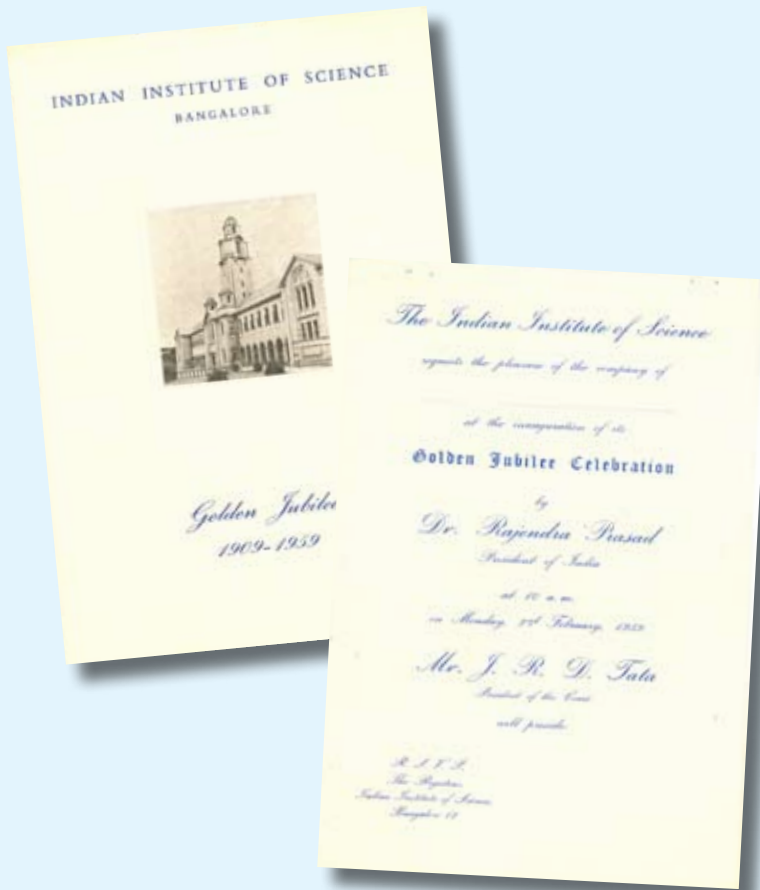 INDIAN INSTITUTE OF SCIENCE
BANGALORE
Golden Jubilee
1909-1959
The Indian Institute of Science
requests the pleasure of the company of
at the inauguration of its
Golden Jubilee Celebration
by
Dr. Rajendra Prasad
President of India
at 10 a.m.
on Monday, February, 1959
Mr. J. R. D. Tata
President of the Court
will preside
R. S. V. P.
The Registrar,
Indian Institute of Science,
Bangalore 12